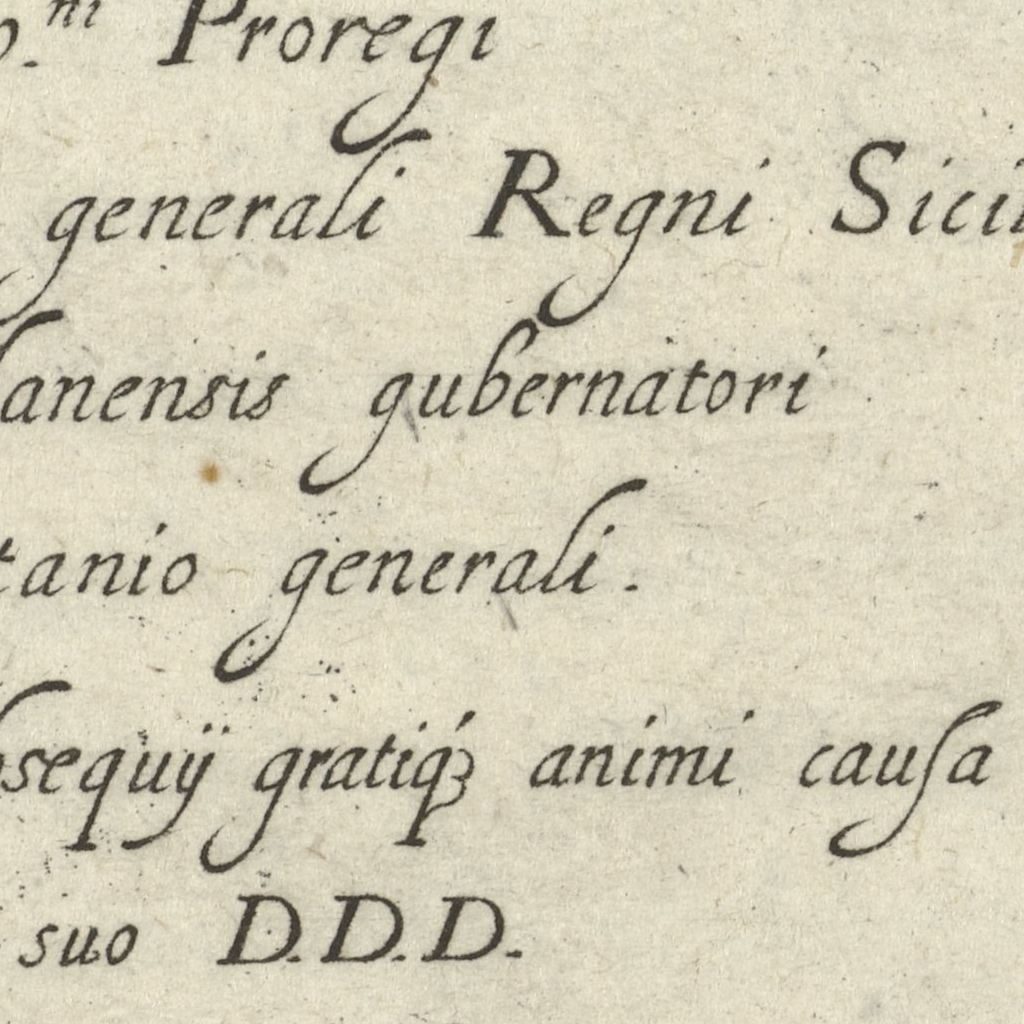 Proregi
generali Regni Sicil
anensis gubernatori
tanio generali.
sequij gratiq́ꝫ animi cauſa
suo D.D.D.